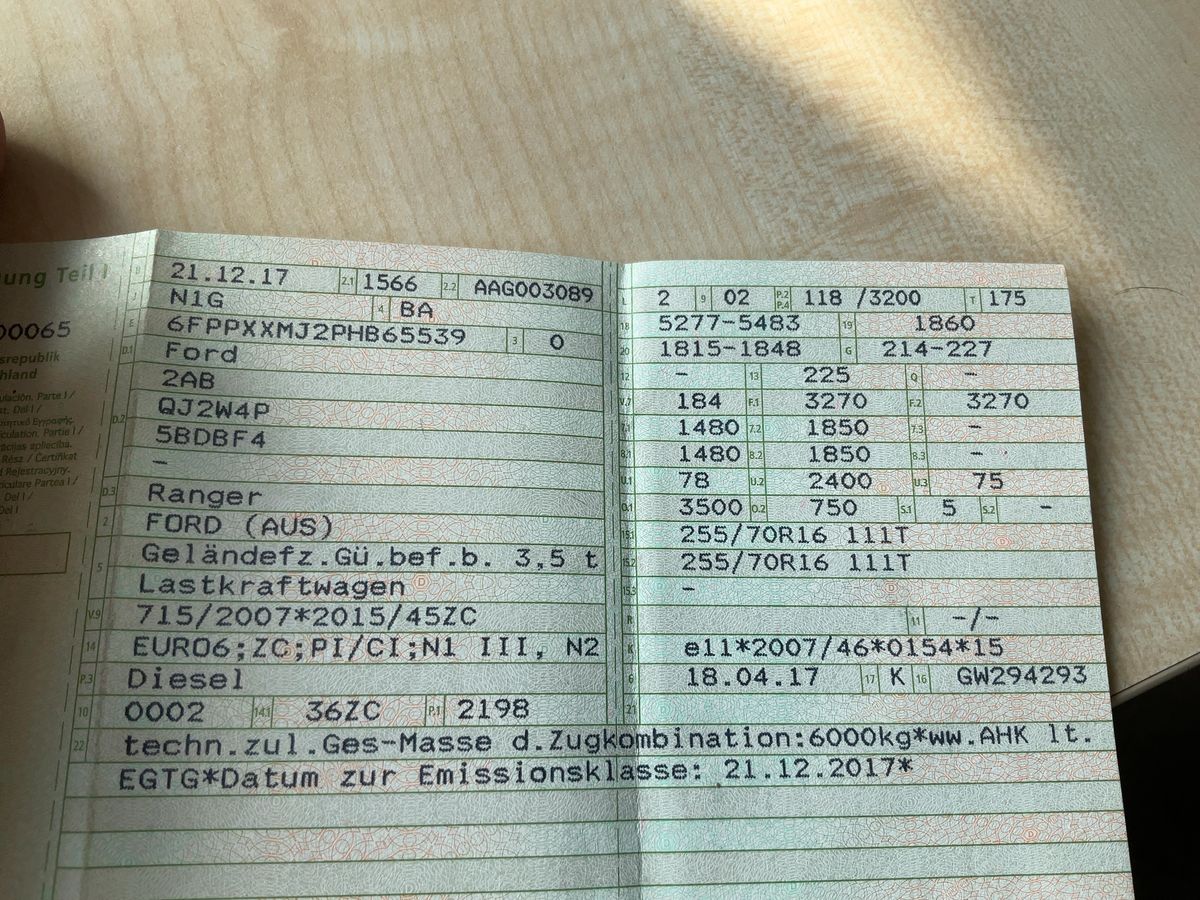 ung Teil I
00065
srepublik
hland
B 21.12.17 2.1 1566 2.2 AAG003089
J N1G 4 BA
E 6FPPXXMJ2PHB65539 3 0
D.1 Ford
2AB
D.2 QJ2W4P
5BDBF4
–
D.3 Ranger
2 FORD (AUS)
5 Geländefz.Gü.bef.b. 3,5 t
Lastkraftwagen
V.9 715/2007*2015/45ZC
14 EURO6;ZC;PI/CI;N1 III, N2
P.3 Diesel
10 0002 14.1 36ZC P.1 2198
L 2 9 02 P.2 P.4 118 /3200 T 175
18 5277-5483 19 1860
20 1815-1848 G 214-227
12 – 13 225 Q –
V.7 184 F.1 3270 F.2 3270
7.1 1480 7.2 1850 7.3 –
8.1 1480 8.2 1850 8.3 –
U.1 78 U.2 2400 U.3 75
O.1 3500 O.2 750 S.1 5 S.2 –
15.1 255/70R16 111T
15.2 255/70R16 111T
15.3 –
R 11 –/–
K e11*2007/46*0154*15
6 18.04.17 17 K 16 GW294293
21
22 techn.zul.Ges-Masse d.Zugkombination:6000kg*ww.AHK lt.
EGTG*Datum zur Emissionsklasse: 21.12.2017*